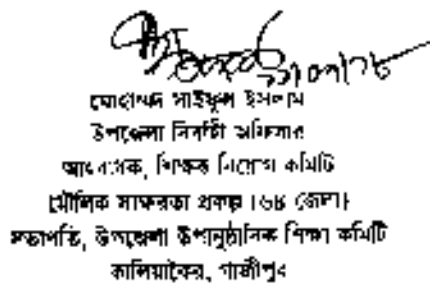 মোহাম্মদ সাইফুল ইসলাম
উপজেলা নির্বাহী অফিসার
আহবায়ক, শিক্ষক নিয়োগ কমিটি
(মৌলিক সাক্ষরতা প্রকল্প (৬৪ জেলা)
সভাপতি, উপজেলা উপানুষ্ঠানিক শিক্ষা কমিটি
কালিয়াকৈর, গাজীপুর